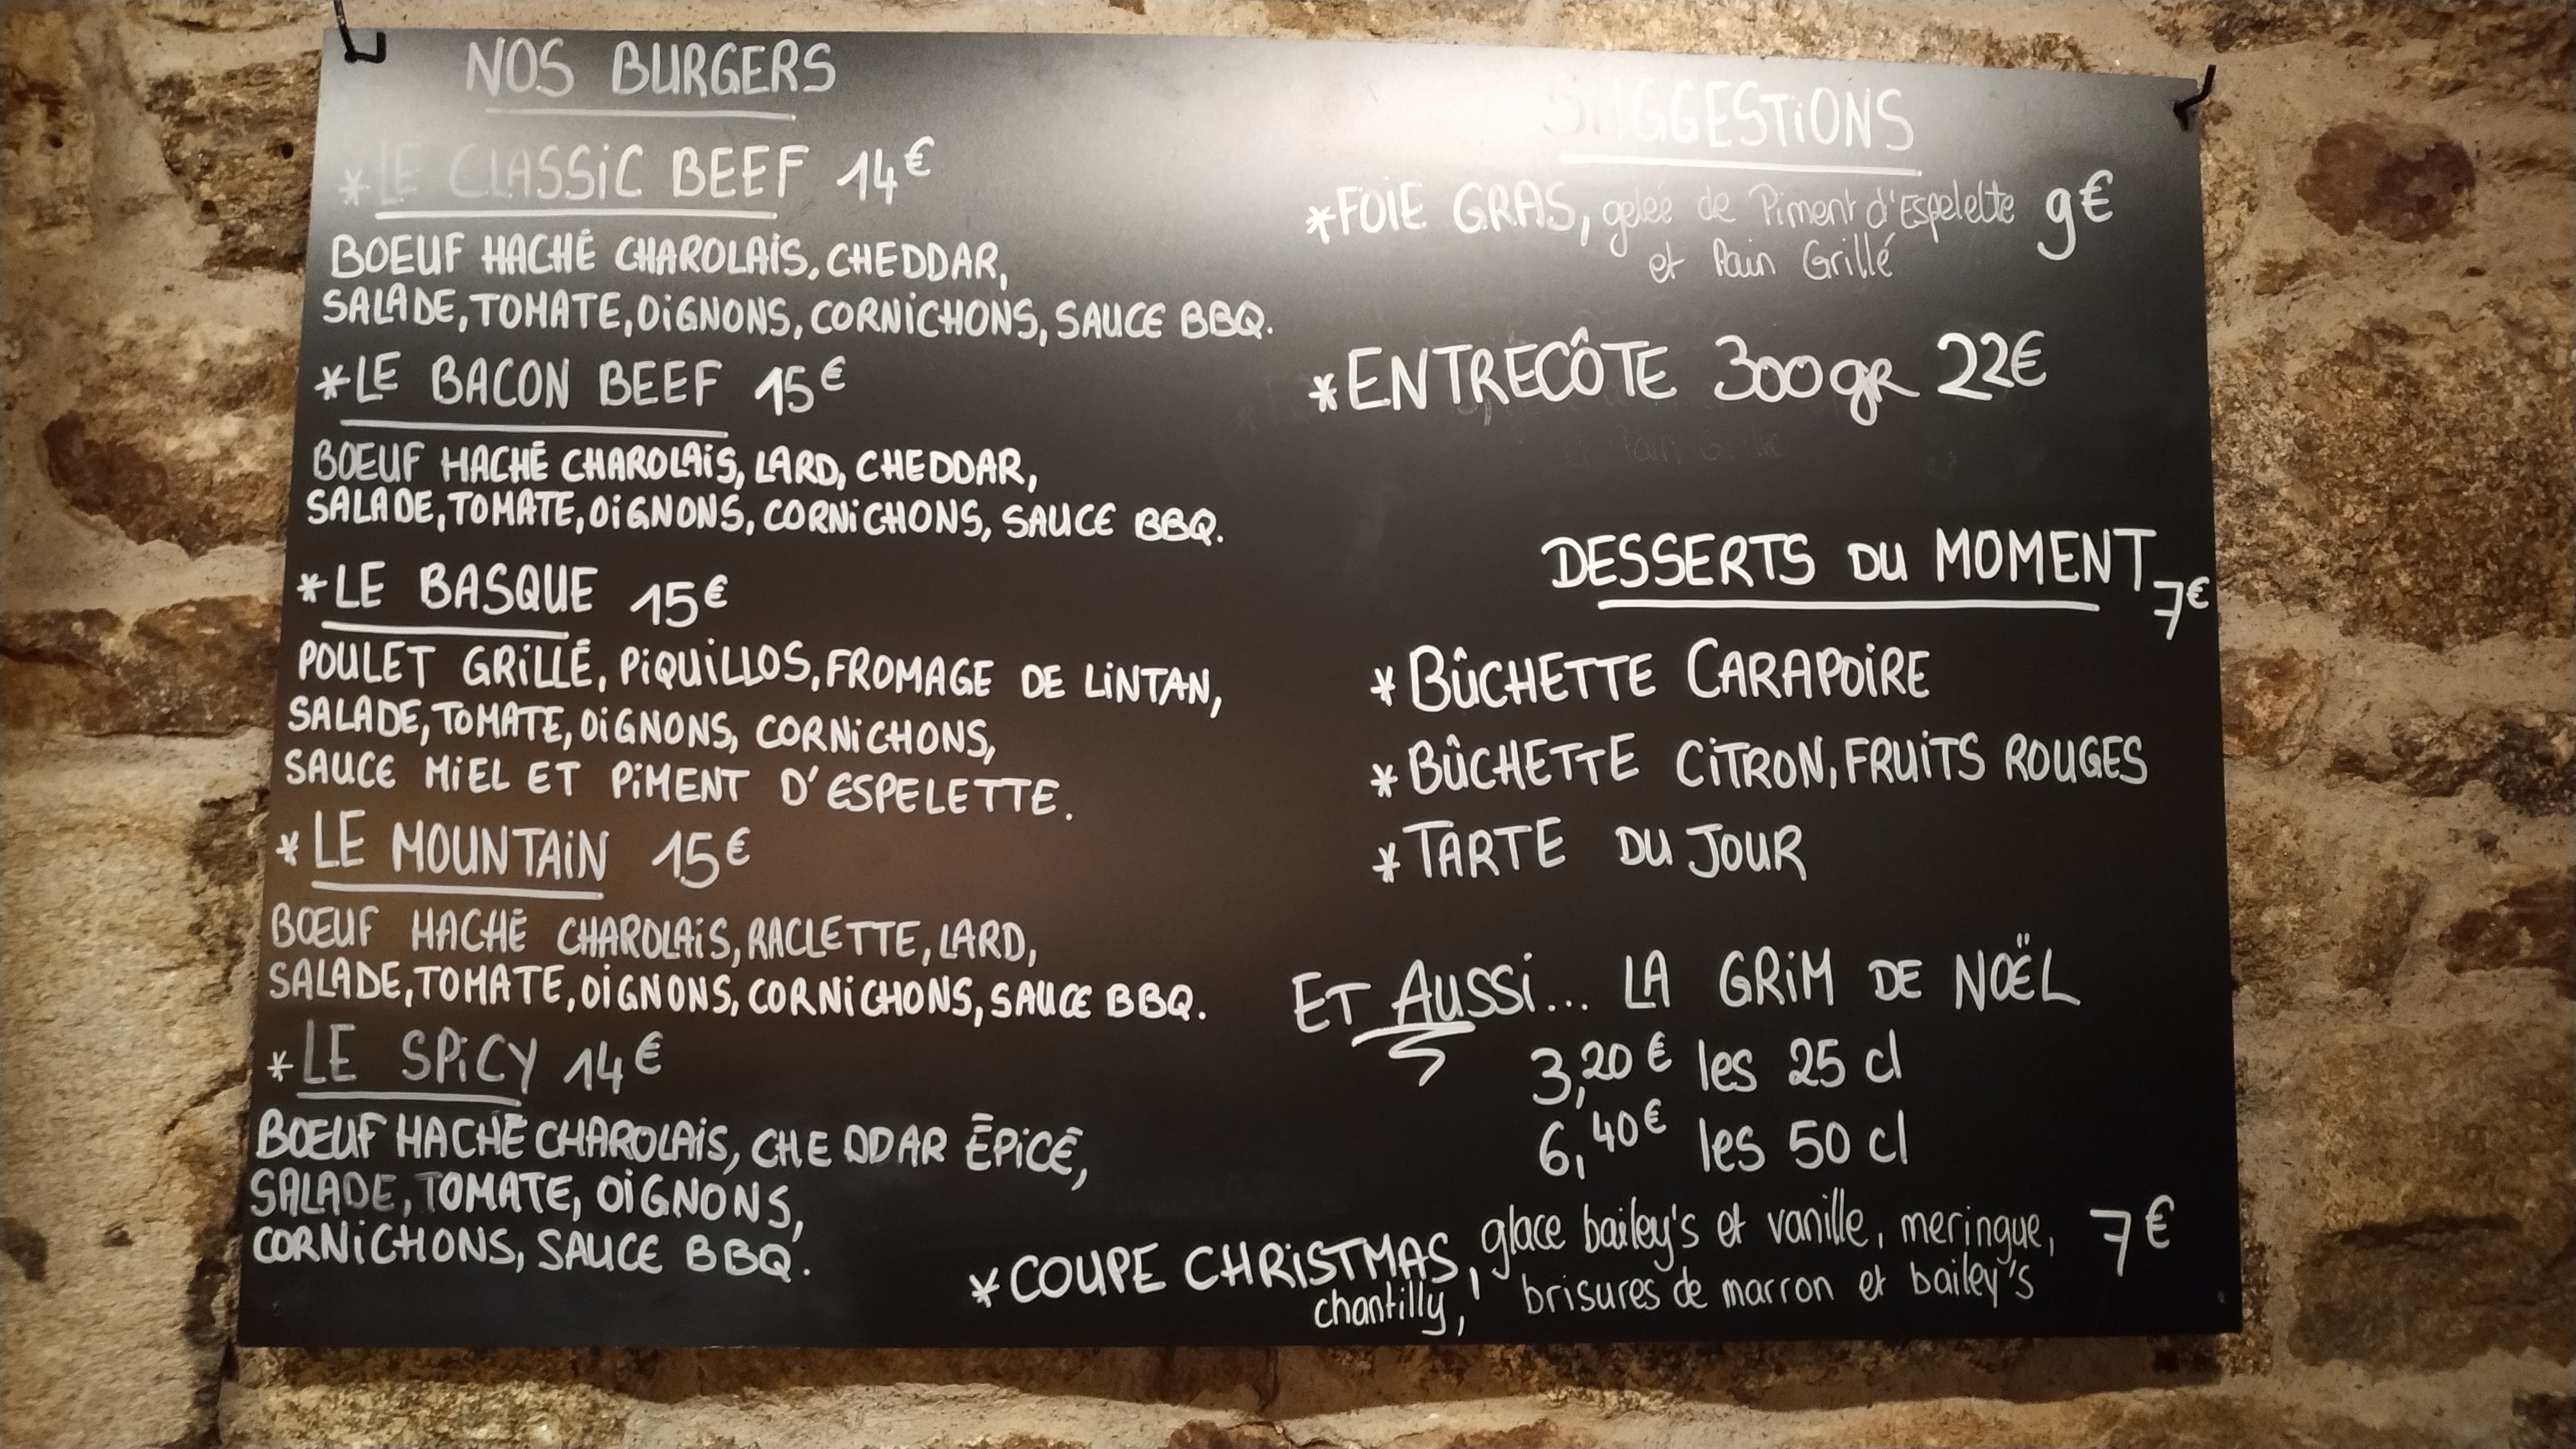 NOS BURGERS
*LE CLASSiC BEEF 14€
BOEUF HACHÉ CHAROLAiS, CHEDDAR,
SALADE, TOMATE, OiGNONS, CORNiCHONS, SAUCE BBQ.
*LE BACON BEEF 15€
BOEUF HACHÉ CHAROLAiS, LARD, CHEDDAR,
SALADE, TOMATE, OiGNONS, CORNiCHONS, SAUCE BBQ.
*LE BASQUE 15€
POULET GRiLLÉ, PiQUiLLOS, FROMAGE DE LiNTAN,
SALADE, TOMATE, OiGNONS, CORNiCHONS,
SAUCE MiEL ET PiMENT D'ESPELETTE.
*LE MOUNTAiN 15€
BŒUF HACHÉ CHAROLAiS, RACLETTE, LARD,
SALADE, TOMATE, OiGNONS, CORNiCHONS, SAUCE BBQ.
*LE SPiCY 14€
BŒUF HACHÉ CHAROLAiS, CHEDDAR ÉPiCÉ,
SALADE, TOMATE, OiGNONS,
CORNiCHONS, SAUCE BBQ.
SUGGESTiONS
*FOIE GRAS, gelée de Piment d'Espelette 9€
et Pain Grillé
*ENTRECÔTE 300gR 22€
DESSERTS DU MOMENT 7€
*BÛCHETTE CARAPOiRE
*BÛCHETTE CiTRON, FRUiTS ROUGES
*TARTE DU JOUR
ET AUSSi... LA GRiM DE NOËL
3,20€ les 25 cl
6,40€ les 50 cl
*COUPE CHRiSTMAS, glace bailey's et vanille, meringue, 7€
chantilly, brisures de marron et bailey's